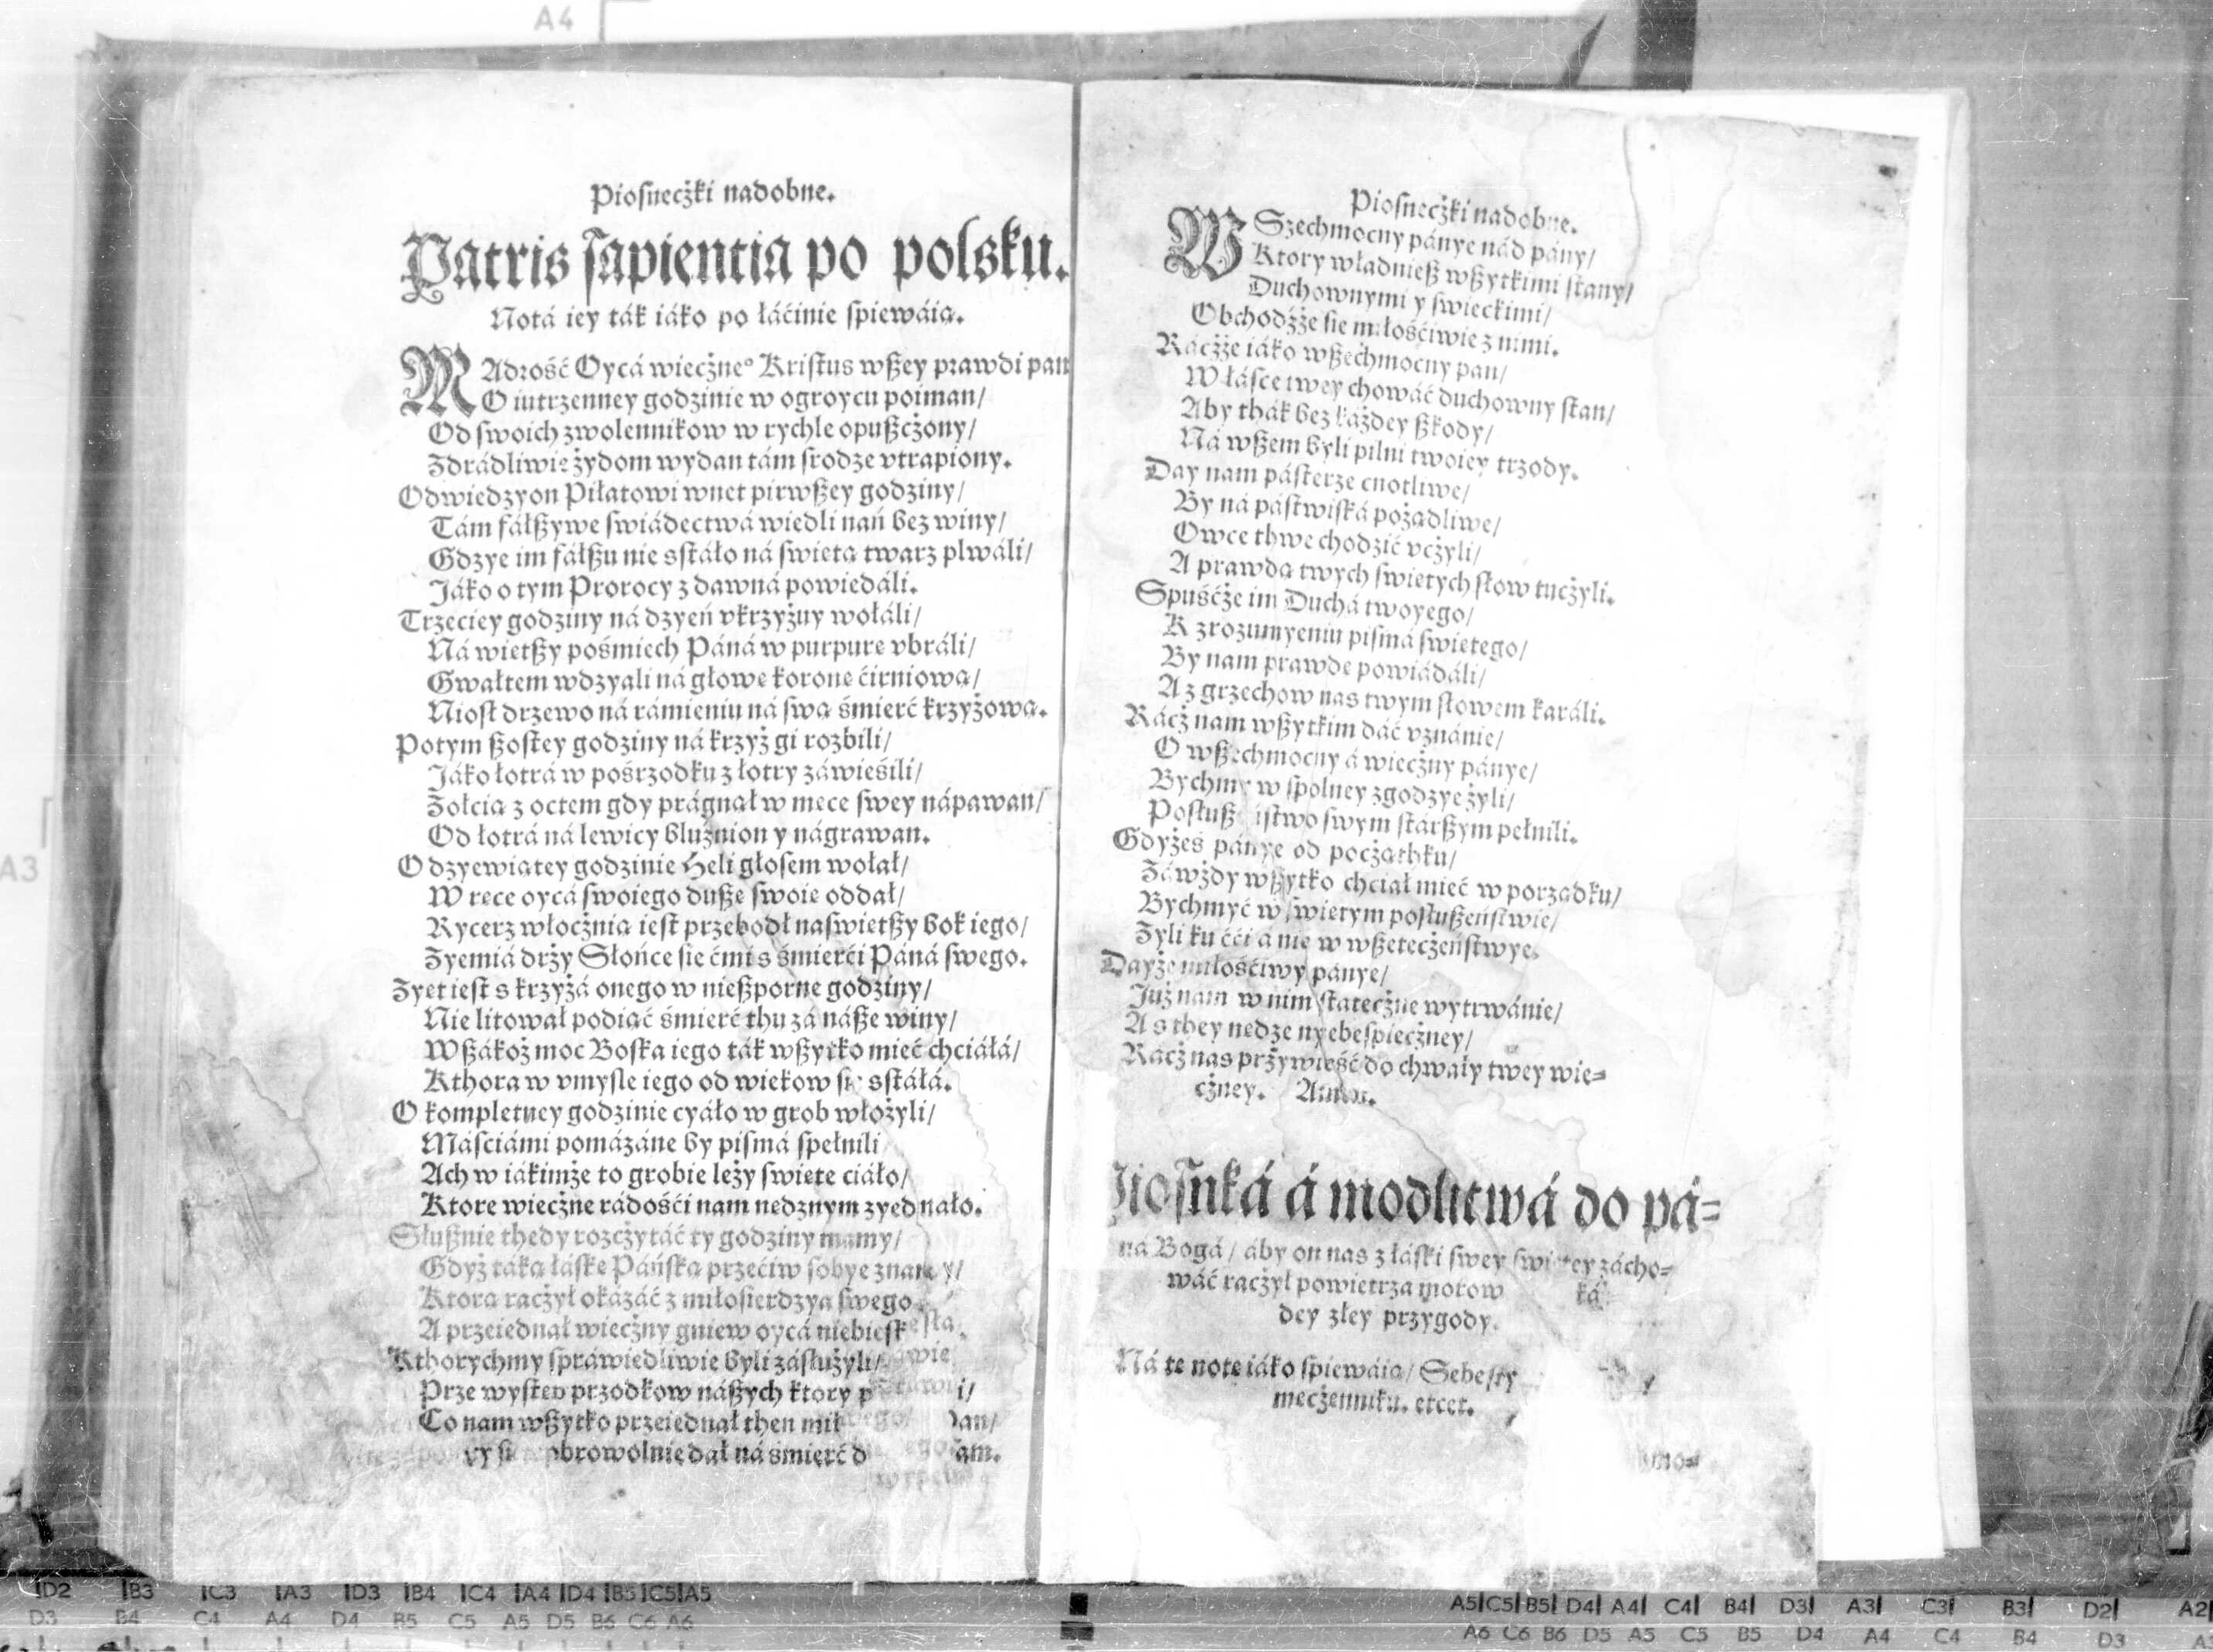 Piosnecżki nadobne.
Patris sapientia po polsku.
Notá iey ták iáko po łáćinie spiewáią.
MAdrość Oycá wiecżne° Kristus wßey prawdi pan
O iutrzenney godzinie w ogroycu poiman/
Od swoich zwolennikow w rychle opußcżony/
Zdrádliwie żydom wydan tám srodze vtrapiony.
Odwiedzyon Piłatowi wnet pirwßey godziny/
Tám fálßywe swiádectwá wiedli nań bez winy/
Gdzye im fálßu nie sstáło ná swięta twarz plwáli/
Jáko o tym Prorocy z dawná powiedáli.
Trzeciey godziny ná dzyeń vkrzyżuy wołáli/
Ná wietßy pośmiech Páná w purpure vbráli/
Gwałtem wdzyali ná głowe korone ćirniową/
Niosł drzewo ná rámieniu ná swą śmierć krzyżową.
Potym ßostey godziny ná krzyż gi rozbili/
Jáko łotrá w pośrzodku z łotry záwieśili/
Zołcią z octem gdy prágnął w męce swey nápawan/
Od łotrá ná lewicy bluźnion y nágrawan.
O dzyewiątey godzinie Heli głosem wołał/
W rece oycá swoiego duße swoie oddał/
Rycerz włocżnią iest przebodł naswietßy bok iego/
Zyemiá drży Słońce sie ćmi s śmierći Páná swego.
Zyęt iest s krzyżá onego w nießporne godziny/
Nie litował podiąć śmierć thu zá náße winy/
Wßákoż moc Boska iego ták wßytko mieć chciáłá/
Kthora w vmysle iego od wiekow sie sstáłá.
O kompletney godzinie cyáło w grob włożyli/
Máściámi pomázáne by pismá spełnili
Ach w iákimże to grobie leży swięte ciáło/
Ktore wiecżne rádośći nam nędznym zyednało.
Słußnie thedy rozcżytáć ty godziny mamy/
Gdyż táką łáskę Páńską przećiw sobye znamy/
Ktorą racżył okázáć z miłosierdzya swego
A przeiednał wiecżny gniew oycá niebiesk
Kthorychmy spráwiedliwie byli zásłużyli/
Prze wystep przodkow náßych ktory p i/
Co nam wßytko przeiednał then mił pan/
sie dobrowolnie dał ná śmierć d am.
Piosnecżki nadobne.
WSzechmocny pánye nád pány/
Ktory władnieß wßytkimi stany/
Duchownymi y swieckimi/
Obchodźże sie miłośćiwie z nimi.
Rácżże iáko wßechmocny pan/
W łásce twey chowáć duchowny stan/
Aby thák bez każdey ßkody/
Ná wßem byli pilni twoiey trzody.
Day nam pásterze cnotliwe/
By ná pástwiská pożądliwe/
Owce thwe chodzić vcżyli/
A prawdą twych swiętych słow tucżyli.
Spuśćże im Duchá twoyego/
K zrozumyeniu pismá swiętego/
By nam prawde powiádáli/
A z grzechow nas twym słowem karáli.
Rácż nam wßytkim dáć vznánie/
O wßechmocny á wiecżny pánye/
Bychmy w spolney zgodzye żyli/
Posłußeństwo swym stárßym pełnili.
Gdyżeś pánye od pocżąthku/
Záwżdy wßytko chciał mieć w porządku/
Bychmyć w swiętym posłußeństwie/
Zyli ku ćći á nie w wßetecżeństwye.
Dayże miłośćiwy pánye/
Już nam w nim statecżne wytrwánie/
A s they nędze nyebespiecżney/
Rácż nas przywieść do chwały twey wie=
cżney. Amen.
Piosnká á modlitwá do pá=
ná Bogá/ áby on nas z łáski swey swiętey zácho=
wáć racżył powietrza morow ká
dey złey przygody.
Ná te note iáko spiewáią/ Sebesty
mecżenniku. etcet.